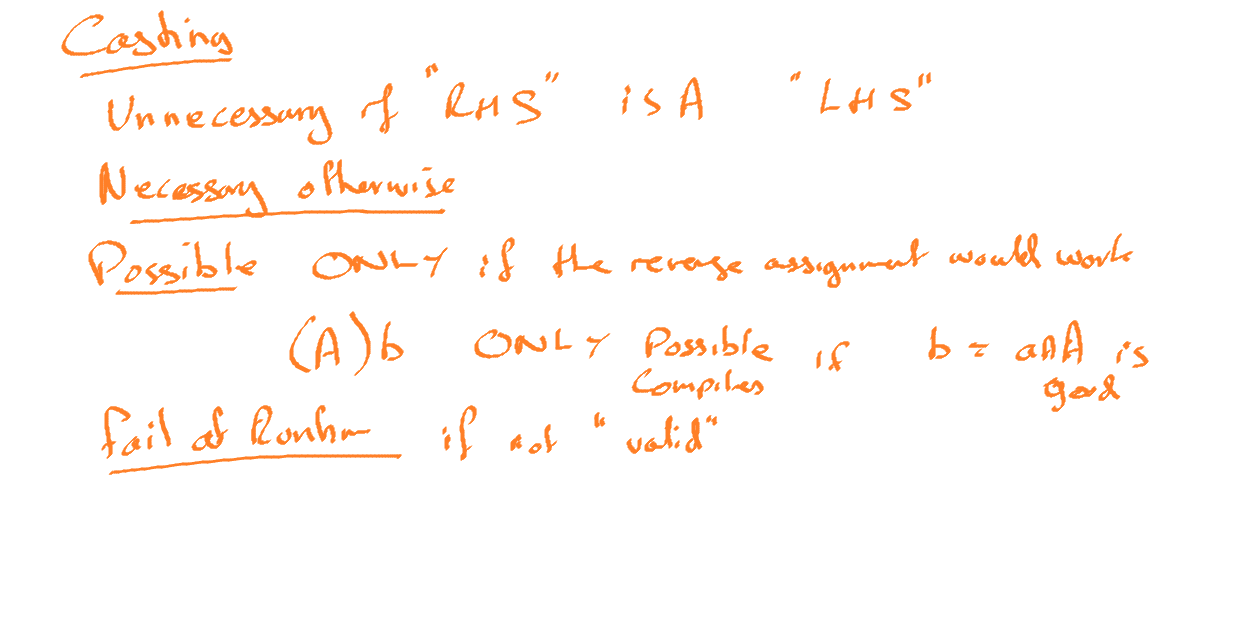 Casting
Unnecessary if "RHS" isA "LHS"
Necessary otherwise
Possible ONLY if the reverse assignment would work
(A)b ONLY Possible if b = anA is
Compiles good
Fail at Runtime if not "valid"